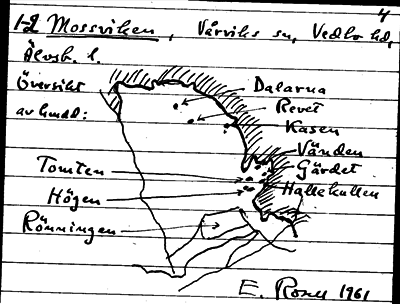 4
1-2 Mossviken, Vårviks sn, Vedbo hd,
Älvsb. l.
Översikt
av hmd:
Dalarna
Revet
Kasen
Vänden
Gärdet
Hallekullen
Tomten
Högen
Rönningen
E. 1961